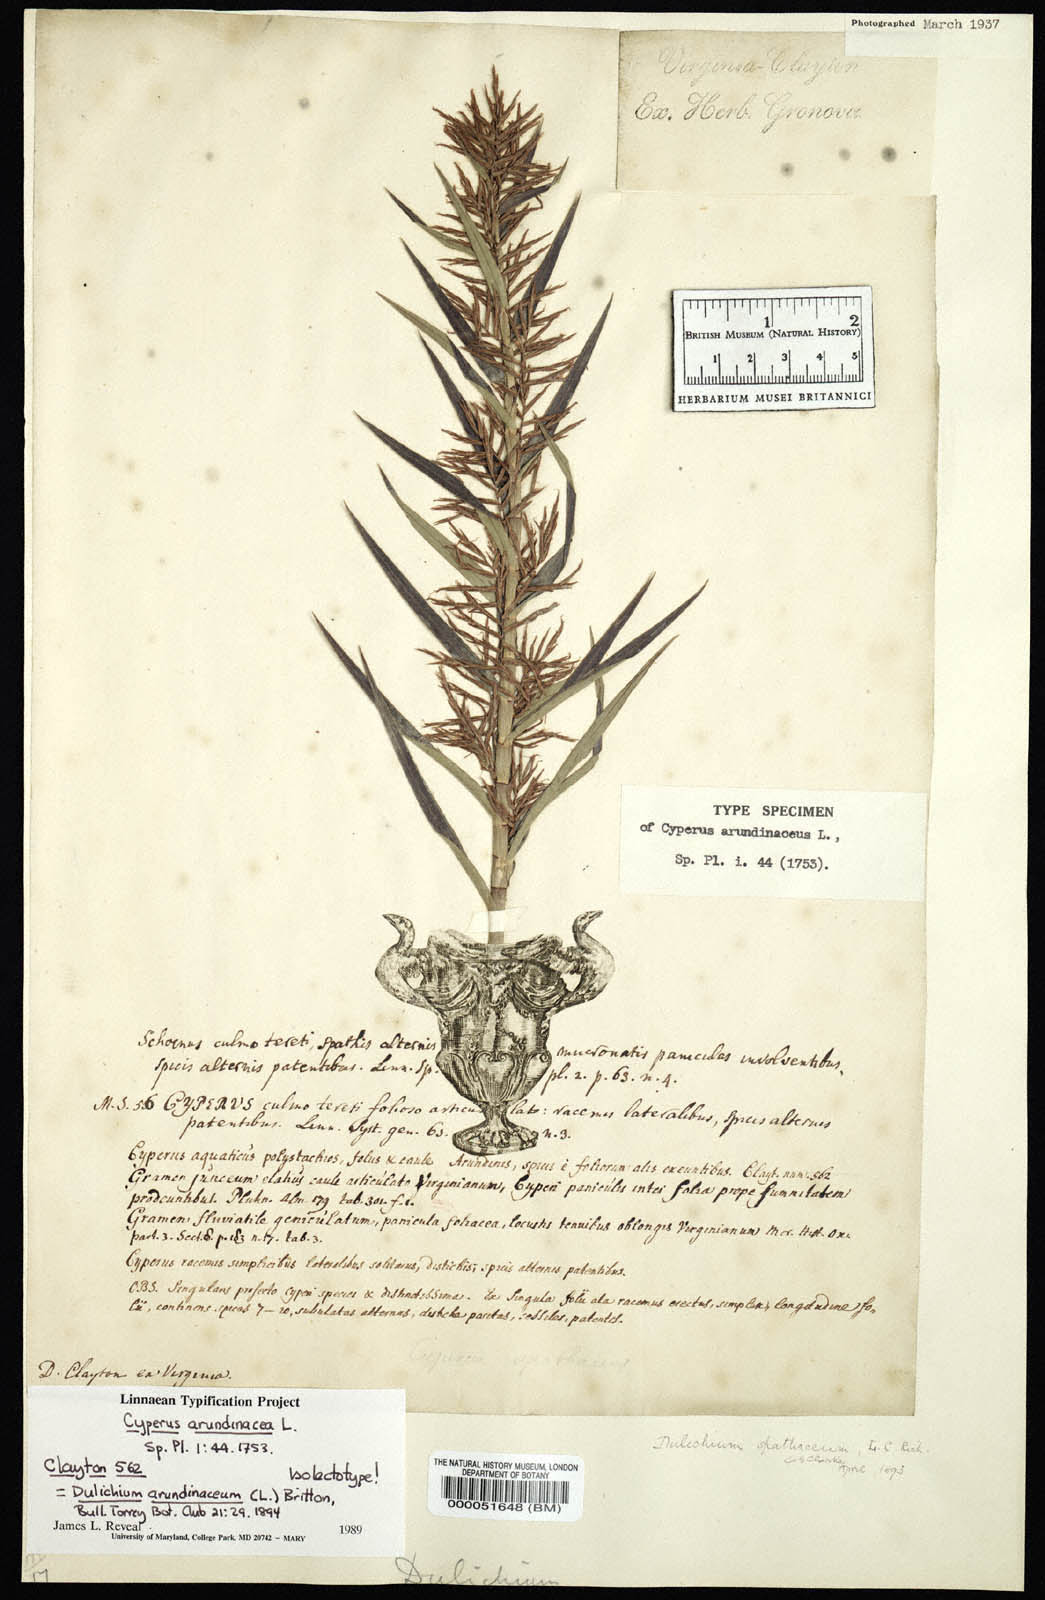 Photographed March 1937
Virginia-Clayton
Ex. Herb. Gronovii
1 2
BRITISH MUSEUM (NATURAL HISTORY)
1 2 3 4 5
HERBARIUM MUSEI BRITANNICI
TYPE SPECIMEN
of Cyperus arundinaceus L.,
Sp. Pl. i. 44 (1753).
Schoenus culmo tereti, spathis alternis mucronatis paniculas involventibus,
spicis alternis patentibus. Linn. Sp. pl. 2. p. 63. n. 4.
M.S. 56 CYPERUS culmo tereti folioso articulato: racemis lateralibus, spicis alternis
patentibus. Linn. Syst. gen. 63. n. 3.
Cyperus aquaticus polystachios, foliis & caule Arundineis, spicis è foliorum alis exeuntibus. Clayt. num. 562
Gramen junceum elatius caule articulato Virginianum, Cyperi paniculis inter folia prope summitatem
prodeuntibus. Plukn. Alm. 179 tab. 301. f. 1.
Gramen fluviatile geniculatum, panicula foliacea, locustis tenuibus oblongis Virginianum Mor. Hist. Ox.
part. 3. Sect. 8. p. 183 n. 17. tab. 3.
Cyperus racemis simplicibus lateralibus solitariis, distichis, spicis alternis patentibus.
OBS. Singularis profecto cyperi species & distinctissima. Ex singula folii ala racemus erectus, simplex, longitudine fo-
lii, continens spicas 7-10, subulatas alternas, disticha positas, sessiles, patentes.
D. Clayton ex Virginia.
Linnaean Typification Project
Cyperus arundinacea L.
Sp. Pl. 1:44. 1753.
Clayton 562
Isolectotype!
= Dulichium arundinaceum (L.) Britton,
Bull. Torrey Bot. Club 21:29. 1894
James L. Reveal 1989
University of Maryland, College Park, MD 20742 – MARY
THE NATURAL HISTORY MUSEUM, LONDON
DEPARTMENT OF BOTANY
000051648 (BM)
Dulichium spathaceum, L. C. Rich.
C B Clarke
April 1893
Dulichium
17